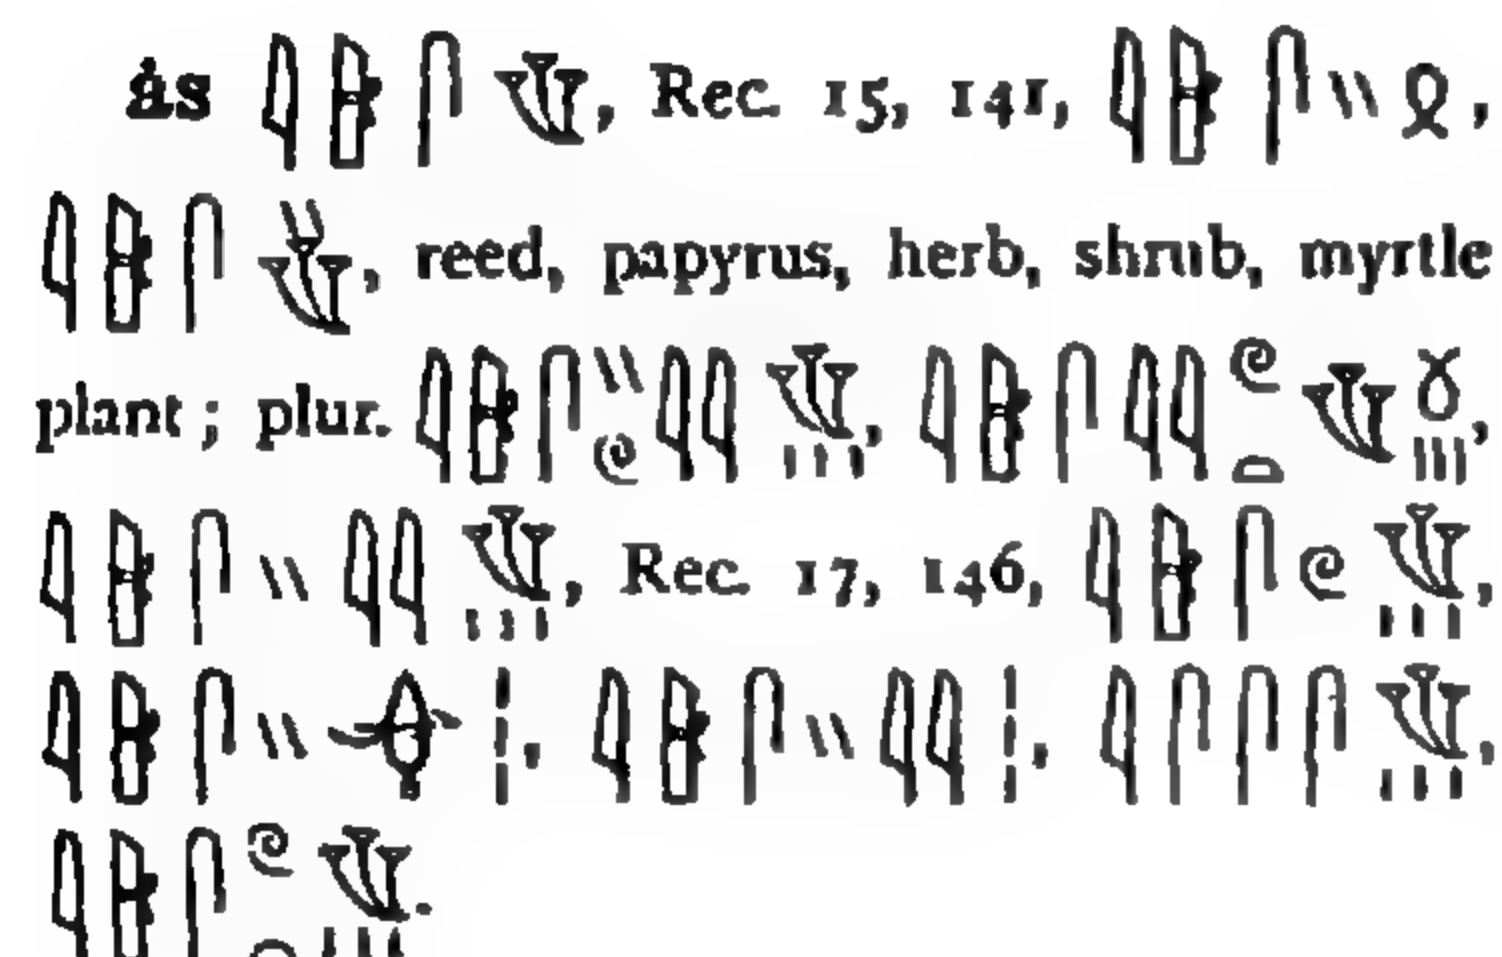 ȧs 𓇋𓇩𓋴𓆰, Rec. 15, 141, 𓇋𓇩𓋴𓏭𓍲,
𓇋𓇩𓋴𓏭𓆰, reed, papyrus, herb, shrub, myrtle
plant; plur. 𓇋𓇩𓋴𓏭𓏲𓇋𓇋𓆰𓏥, 𓇋𓇩𓋴𓇋𓇋𓏲𓏏𓆰𓍱𓏥,
𓇋𓇩𓋴𓏭𓇋𓇋𓆰𓏥, Rec. 17, 146, 𓇋𓇩𓋴𓏲𓆰𓏥,
𓇋𓇩𓋴𓏭 𓏪, 𓇋𓇩𓋴𓏭𓇋𓇋𓏪, 𓇋𓋴𓋴𓋴𓆰𓏥,
𓇋𓇩𓋴𓏲𓏏𓆰𓏥.